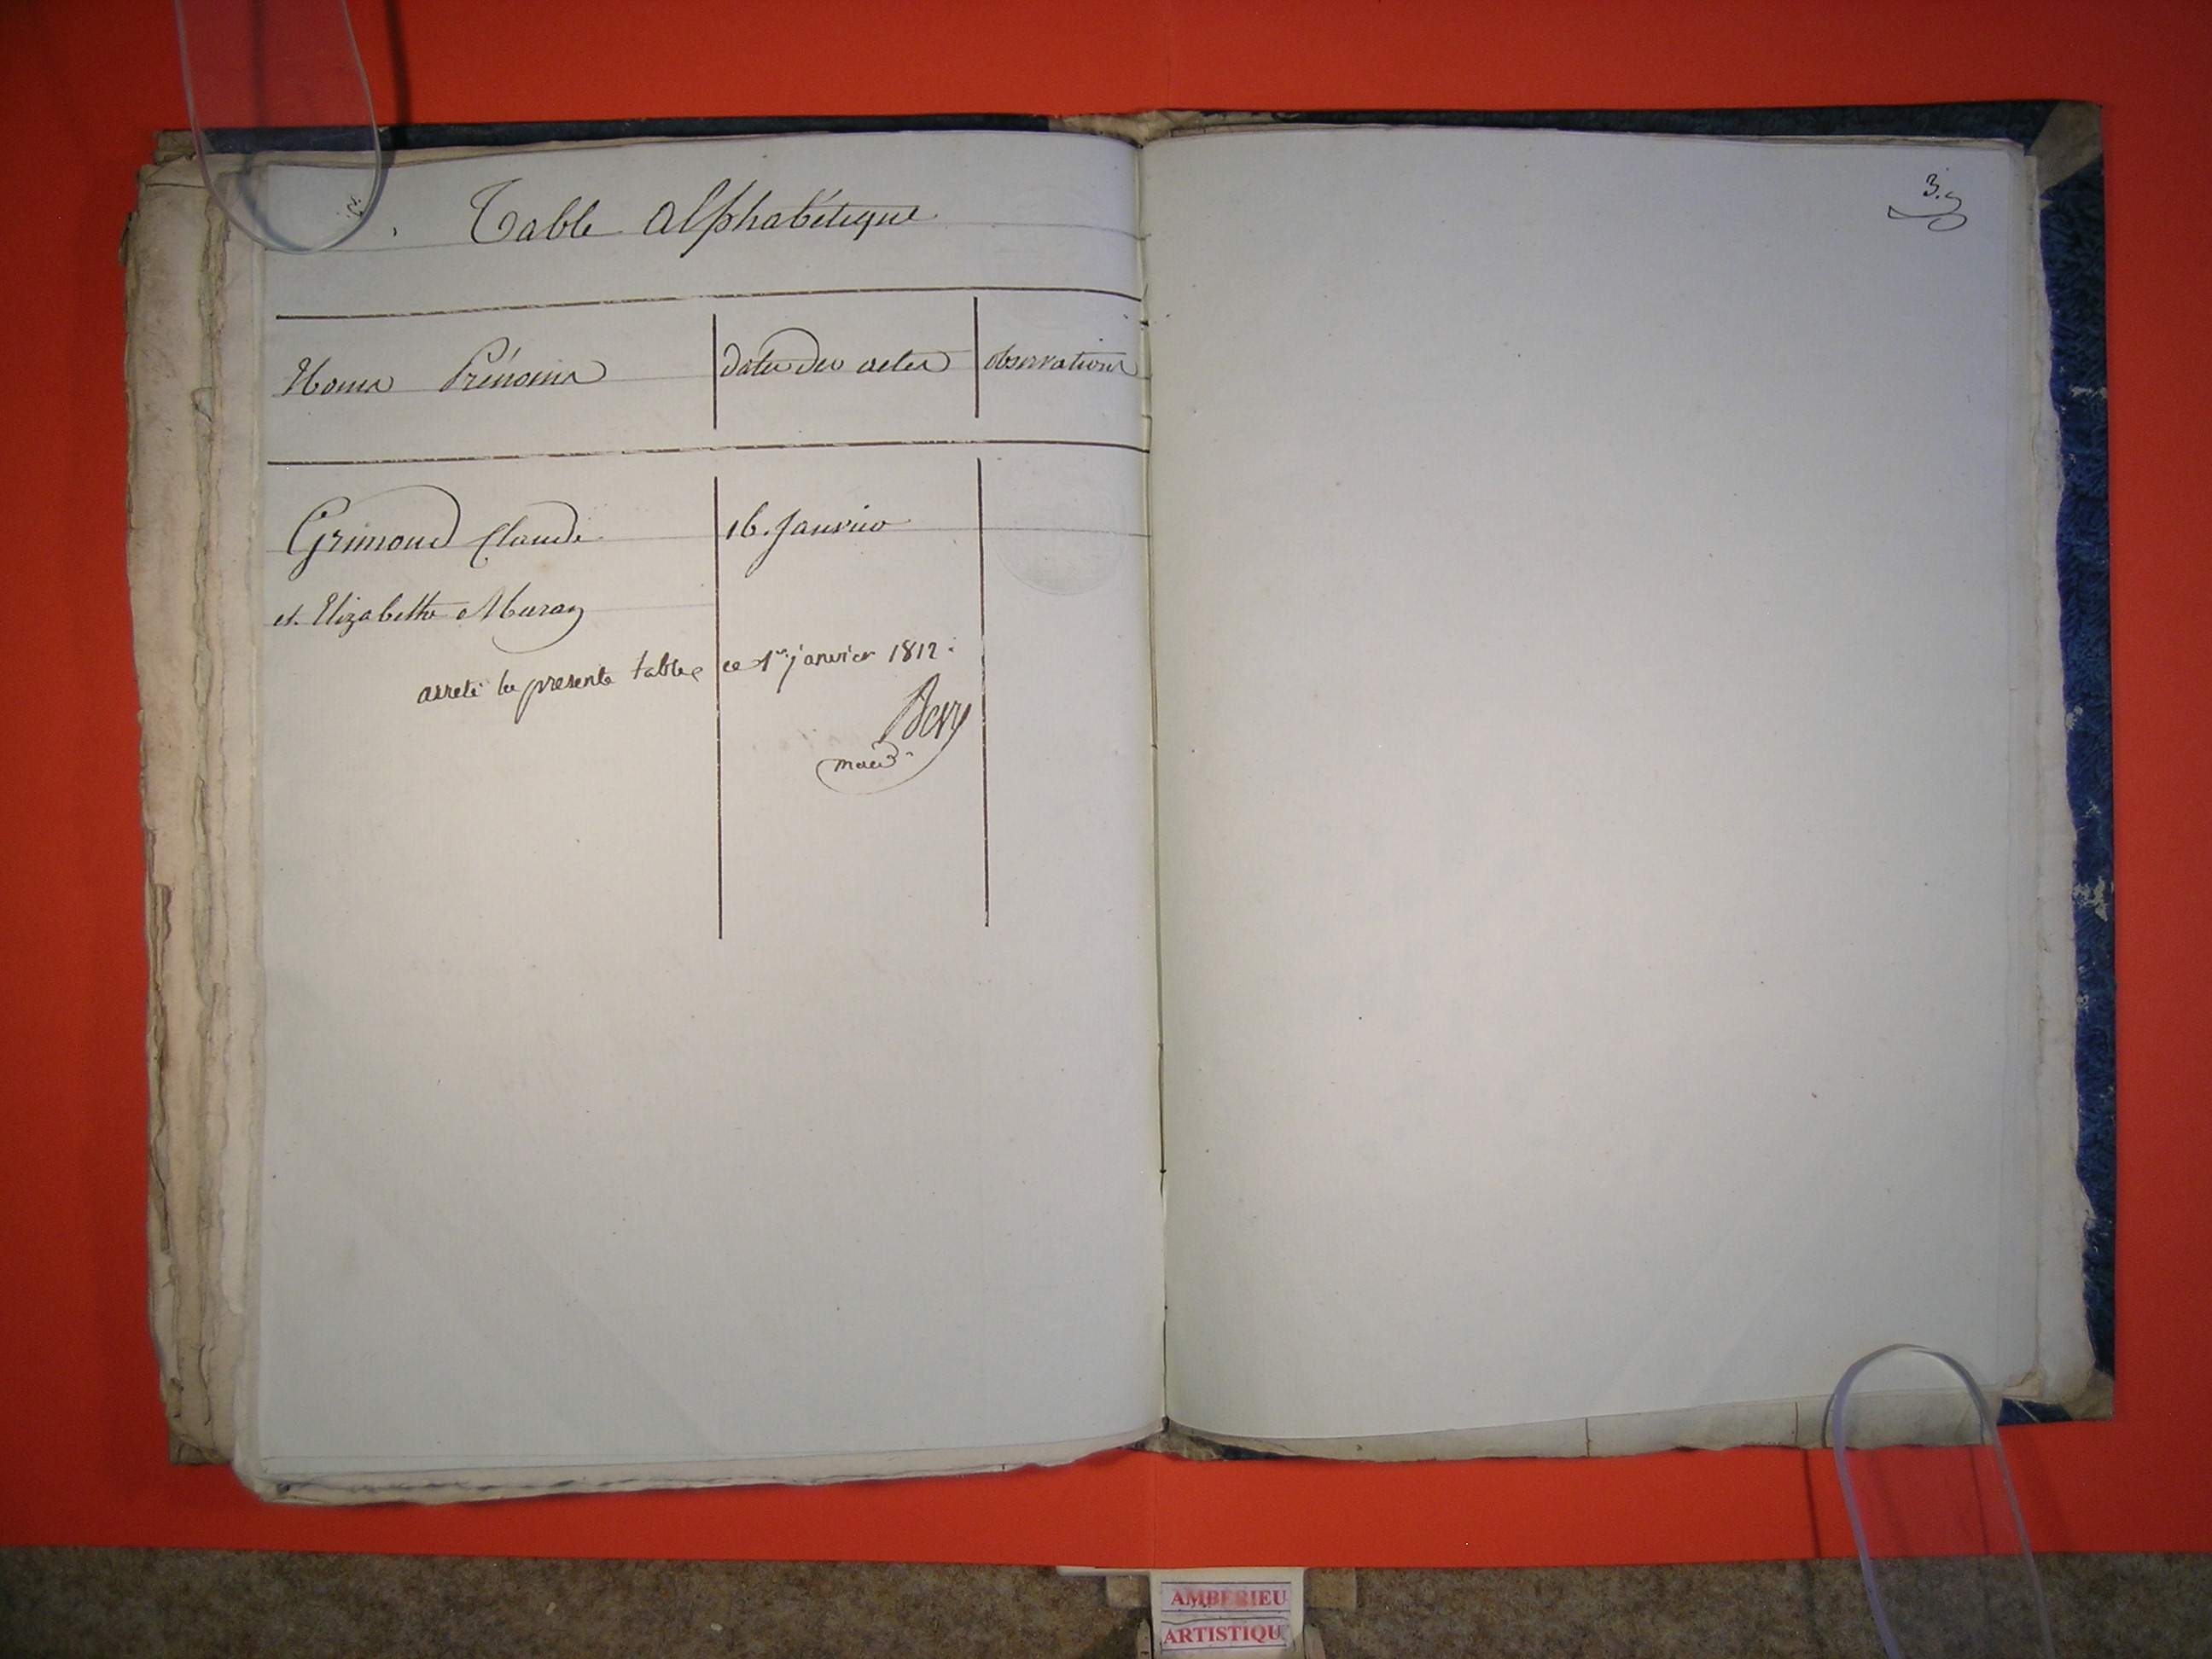 2.
Table Alphabétique
Noms Prénoms | dates des actes | observations
Grimoud Claude | 16. Janvier
et Elizabeth Muray
arreté la presente table ce 1er janvier 1812.
maire
3.
AMBERIEU
ARTISTIQU